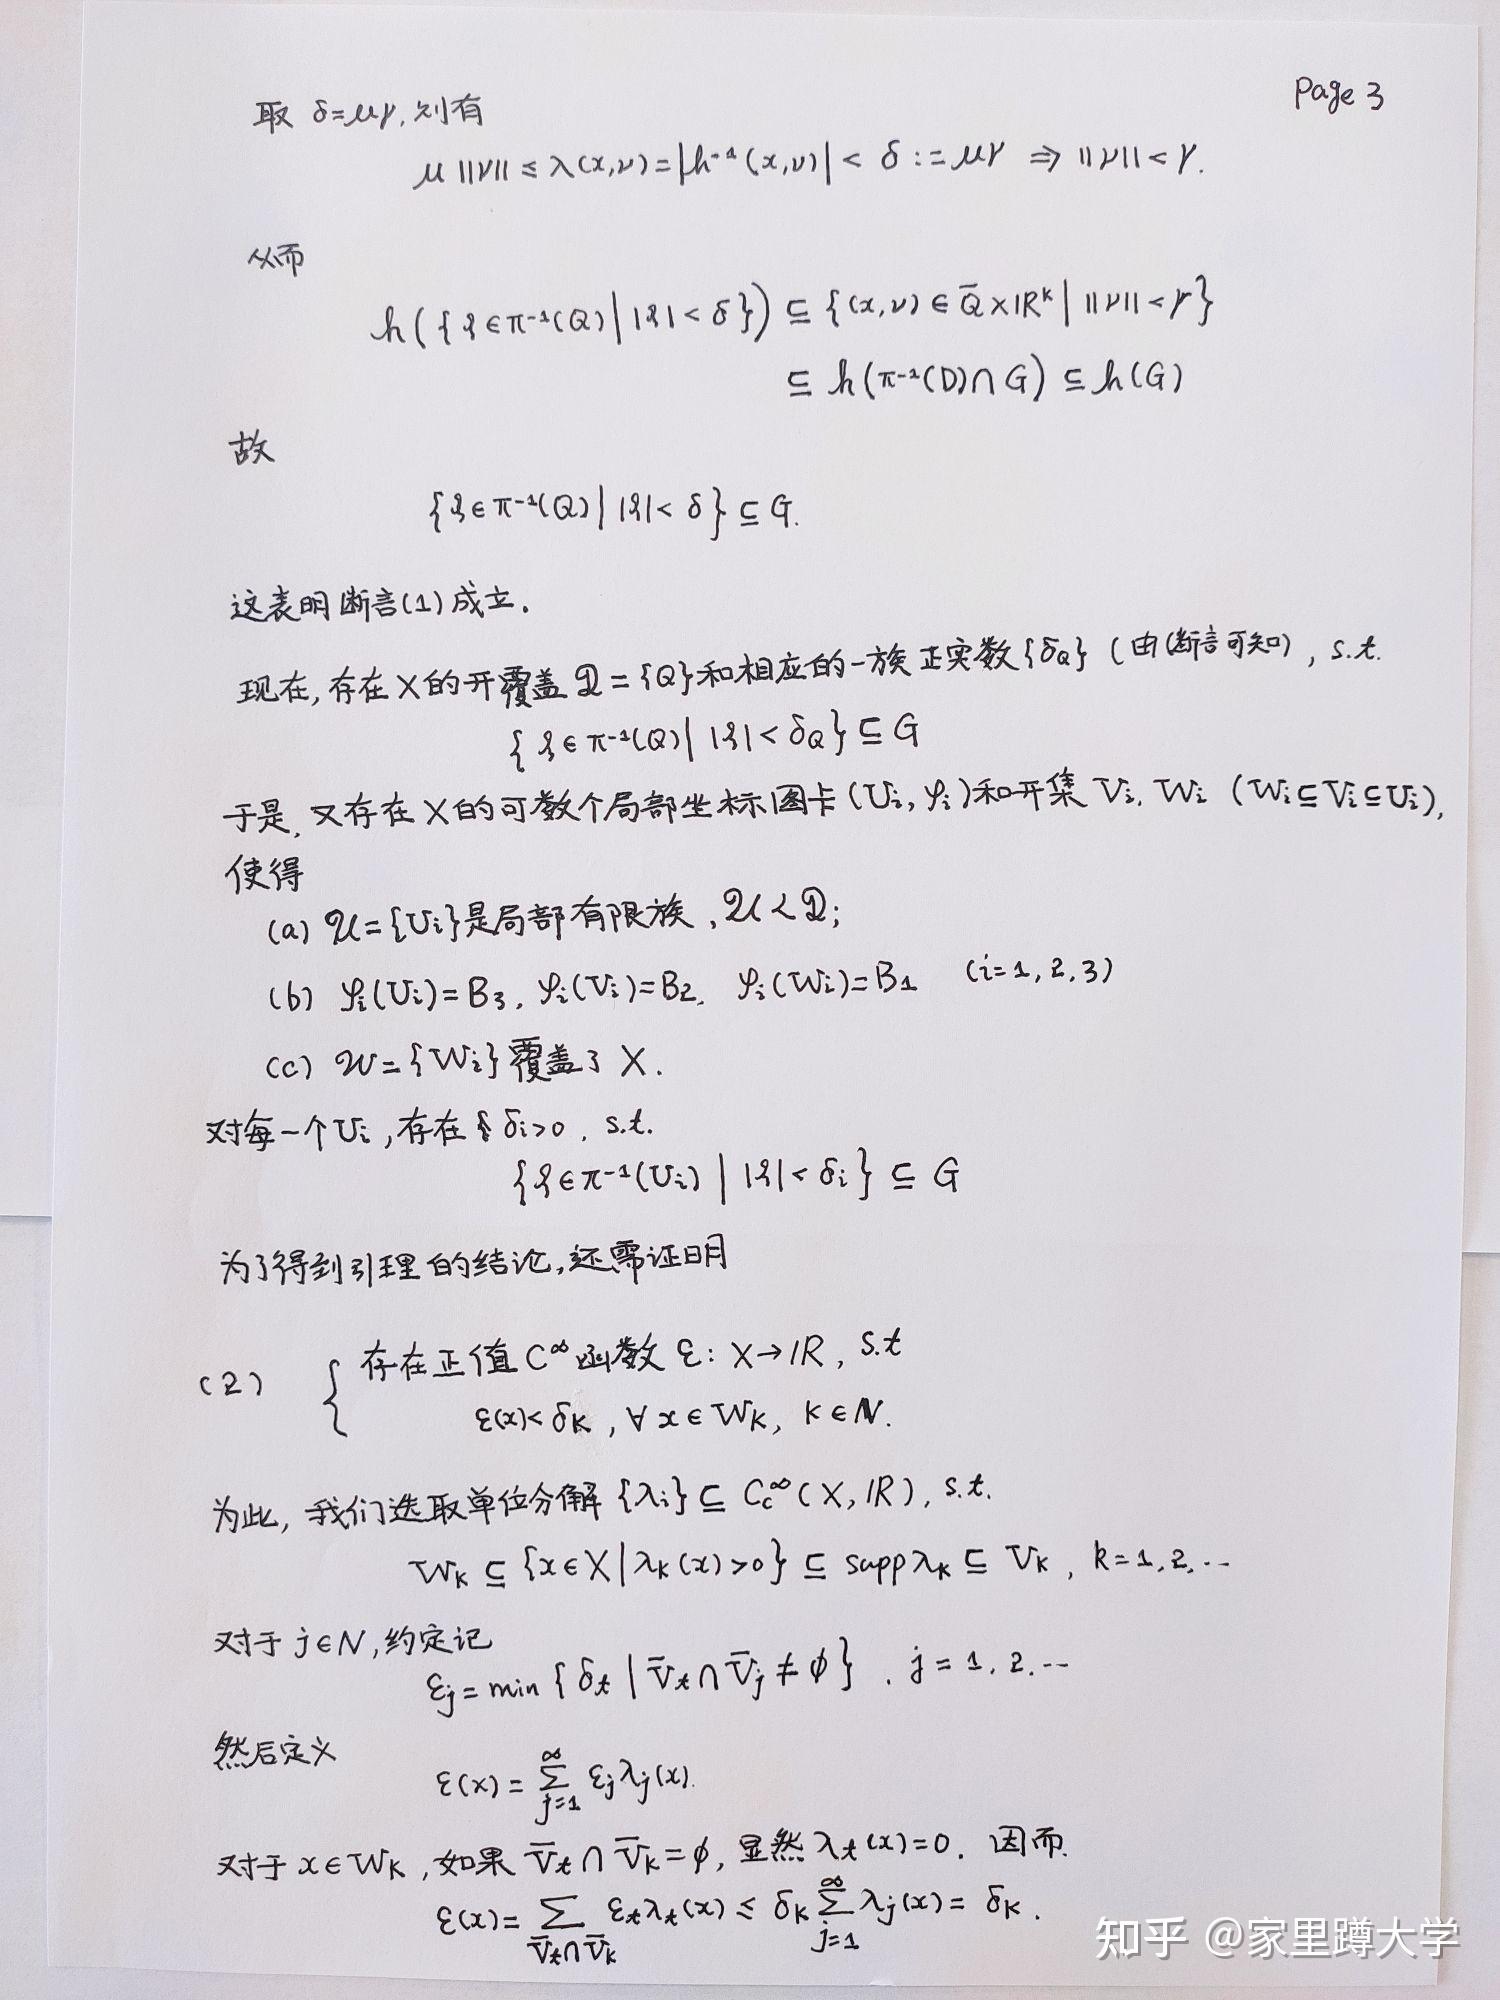 Page 3
取 δ=μγ, 则有
μ||v|| ≤ λ(x,v) = |h⁻¹(x,v)| < δ := μγ ⇒ ||v|| < γ.
从而
h({ξ∈π⁻¹(Q) | |ξ| < δ}) ⊆ {(x,v) ∈ Q̄×ℝᵏ | ||v|| < γ}
⊆ h(π⁻¹(D)∩G) ⊆ h(G)
故
{ξ∈π⁻¹(Q) | |ξ| < δ} ⊆ G.
这表明断言(1)成立.
现在, 存在X的开覆盖 𝒬 = {Q}和相应的一族正实数{δ_Q} (由(断言可知), s.t.
{ξ∈π⁻¹(Q) | |ξ| < δ_Q} ⊆ G
于是, 又存在X的可数个局部坐标图卡 (Uᵢ, φᵢ)和开集 Vᵢ, Wᵢ (Wᵢ⊆Vᵢ⊆Uᵢ),
使得
(a) 𝒰={Uᵢ}是局部有限族, 𝒰<𝒬;
(b) φᵢ(Uᵢ)=B₃, φᵢ(Vᵢ)=B₂, φᵢ(Wᵢ)=B₁ (i=1,2,3)
(c) 𝒲={Wᵢ}覆盖了X.
对每一个Uᵢ, 存在 δᵢ>0, s.t.
{ξ∈π⁻¹(Uᵢ) | |ξ| < δᵢ} ⊆ G
为了得到引理的结论, 还需证明
(2) { 存在正值C^∞函数 ε: X→ℝ, s.t
ε(x)<δ_K, ∀x∈W_K, K∈N.
为此, 我们选取单位分解{λᵢ} ⊆ C_c^∞(X,ℝ), s.t.
W_K ⊆ {x∈X | λ_K(x)>0} ⊆ supp λ_K ⊆ V_K, k=1,2,...
对于 j∈N, 约定记
ε_j = min{δ_t | V̄_t∩V̄_j ≠ ϕ}, j=1,2,...
然后定义
ε(x) = ∑_{j=1}^∞ ε_jλ_j(x).
对于 x∈W_K, 如果 V̄_t∩V̄_K=ϕ, 显然 λ_t(x)=0. 因而
ε(x) = ∑_{V̄_t∩V̄_K} ε_tλ_t(x) ≤ δ_K ∑_{j=1}^∞ λ_j(x) = δ_K.
知乎 @家里蹲大学